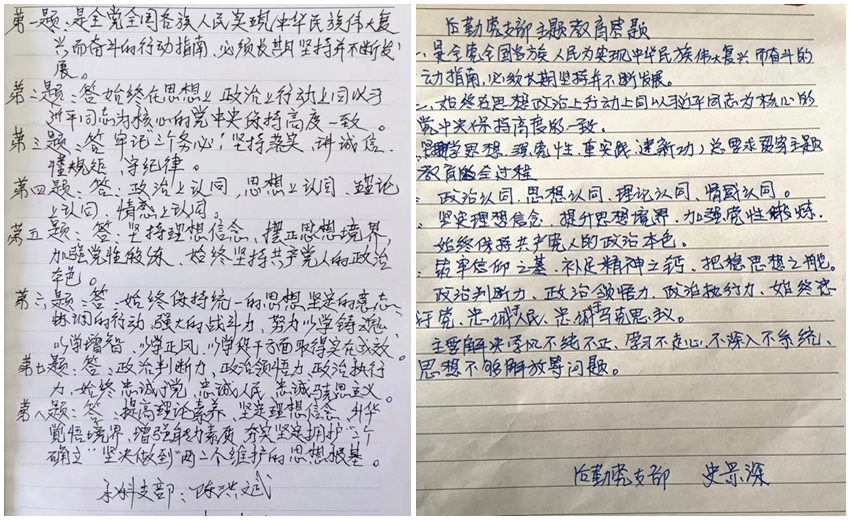 第一题：是全党全国各族人民实现中华民族伟大复
兴而奋斗的行动指南，必须长期坚持并不断发
展。
第二题：答始终在思想上政治上行动上同以习
近平同志为核心的党中央保持高度一致。
第三题：答 牢记“三个务必”，坚持务实、讲诚信、
懂规矩、守纪律。
第四题：答：政治上认同，思想上认同、理论
上认同、情感上认同。
第五题：答：坚持理想信念，摆正思想境界，
加强党性锻炼、始终坚持共产党人的政治
本色。
第六题：答、始终保持统一的思想、坚定的意志、
协调的行动、强大的战斗力，努力以学铸魂、
以学增智、以学正风、以学促干方面取得实在成效。
第七题：答：政治判断力、政治领悟力、政治执行
力、始终忠诚于党、忠诚人民、忠诚马克思主义。
第八题：答：提高理论素养、坚定理想信念、升华
觉悟境界、增强能力素质 夯实坚定拥护“两个
确立”坚决做到“两个维护的思想根基。
支部：陈洪斌
后勤党支部主题教育答题
一、是全党全国各族人民为实现中华民族伟大复兴而奋斗的
动指南，必须长期坚持并不断发展。
二、始终在思想政治上行动上同以习近平同志为核心的
党中央保持高度的一致。
学思想、强党性、重实践、建新功，总要求贯穿主题
教育的全过程
政治认同、思想认同、理论认同、情感认同。
坚定理想信念、提升思想境界、加强党性锻炼、
始终保持共产党人的政治本色。
筑牢信仰之基、补足精神之钙、把稳思想之舵。
政治判断力、政治领悟力、政治执行力、始终忠
于党、忠诚人民、忠诚马克思主义。
主要解决学风不纯不正、学习不走心、不深入不系统、
思想不够解放等问题。
后勤党支部 史景深